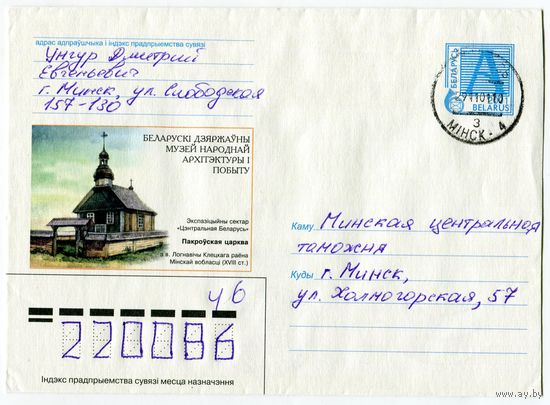 адрас адпраўшчыка і індэкс прадпрыемства сувязі
Унгур Дмитрий
Евгеньевич
г. Минск, ул. Слободская
157-130
БЕЛАРУСЬ
А
BELARUS
3
МІНСК - 4
БЕЛАРУСКІ ДЗЯРЖАЎНЫ
МУЗЕЙ НАРОДНАЙ
АРХІТЭКТУРЫ І
ПОБЫТУ
Экспазіцыйны сектар
«Цэнтральная Беларусь»
Пакроўская царква
з в. Логнавічы Клецкага раёна
Мінскай вобласці (XVIII ст.)
Каму Минская центральная
таможня
Куды г. Минск,
ул. Холмогорская, 57
220086
Індэкс прадпрыемства сувязі месца назначэння
www.ay.by